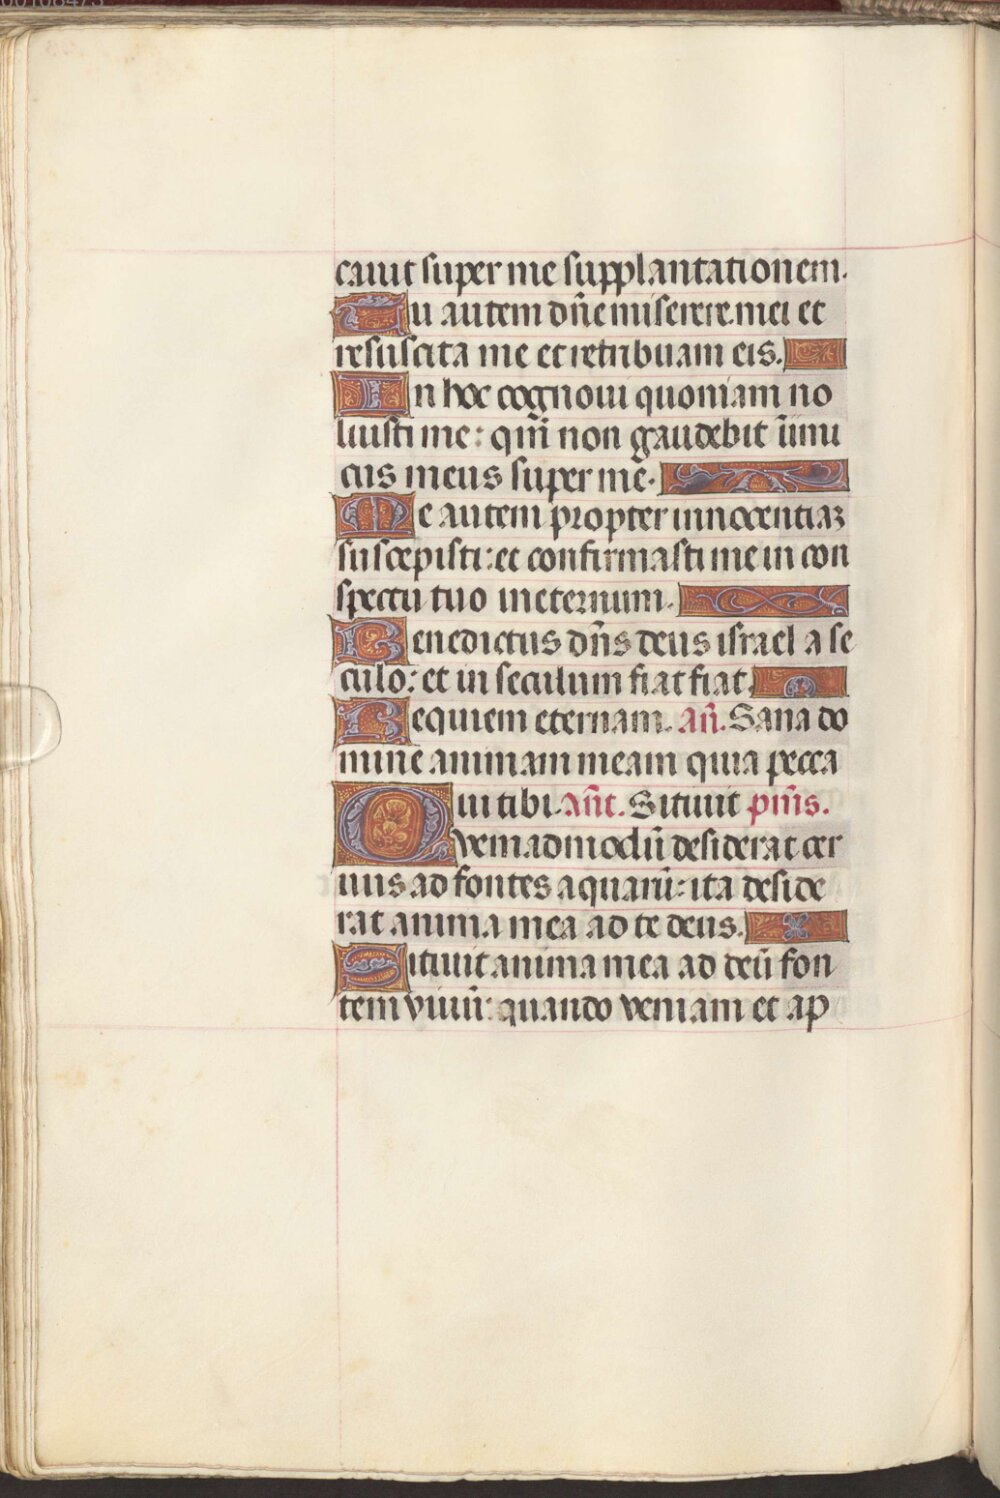 cauit super me supplantationem.
Tu autem dñe miserere mei et
resuscita me et retribuam eis.
In hoc cognoui quoniam no
luisti me: qm̃ non gaudebit inimi
cus meus super me.
Me autem propter innocentiaʒ
suscepisti: et confirmasti me in con
spectu tuo ineternum.
Benedictus dñs deus israel a se
culo: et in seculum fiat fiat
Requiem eternam. añ. Sana do
mine animam meam quia pecca
ui tibi. añt. Sitiuit
Quemadmodũ desiderat cer
uus ad fontes aquarũ: ita deside
rat anima mea ad te deus.
Sitiuit anima mea ad deũ fon
tem viuũ: quando veniam et ap